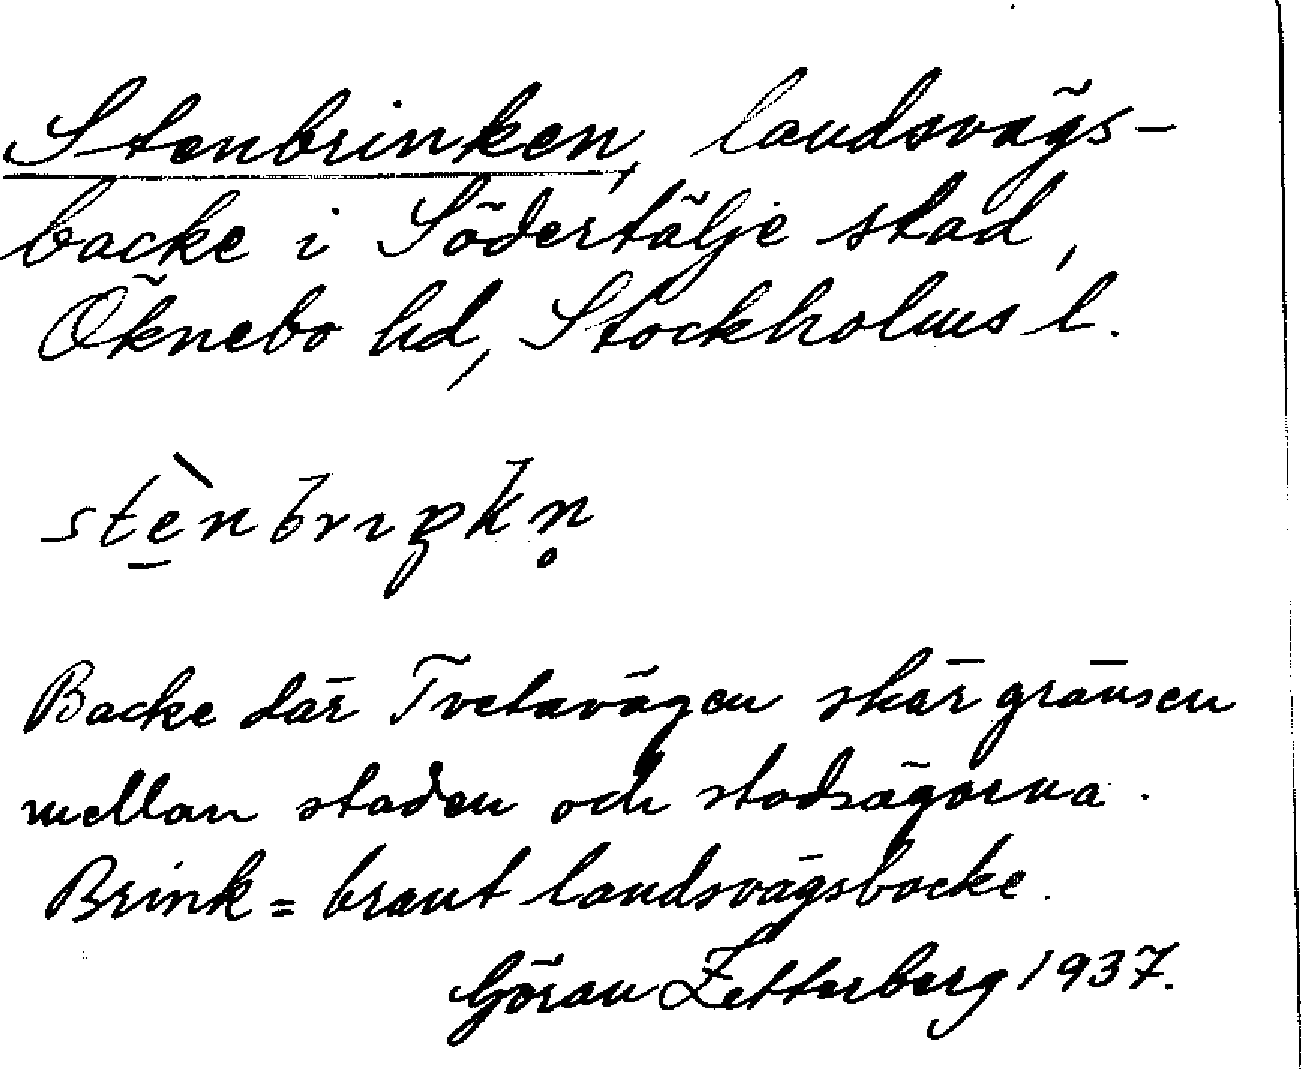 Stenbrinken, landsvägs-
backe i Södertälje stad,
Öknebo hd, Stockholms l.
stènbrıŋkn̥
Backe där Tvetavägen skär gränsen
mellan staden och stadsägorna.
Brink = brant landsvägsbacke.
Göran Zetterberg 1937.